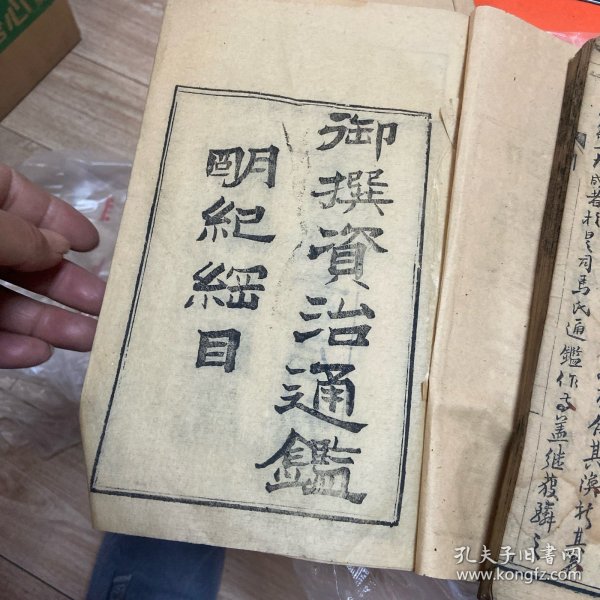 御撰資治通鑑
明紀綱目
是司馬氏通鑑作
盖继獲麟
孔夫子旧书网
www.kongfz.com